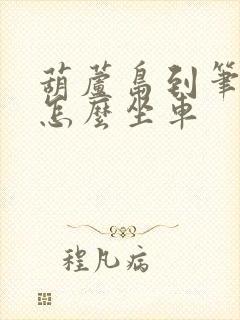 葫蘆島到筆
怎麼坐車
程凡病